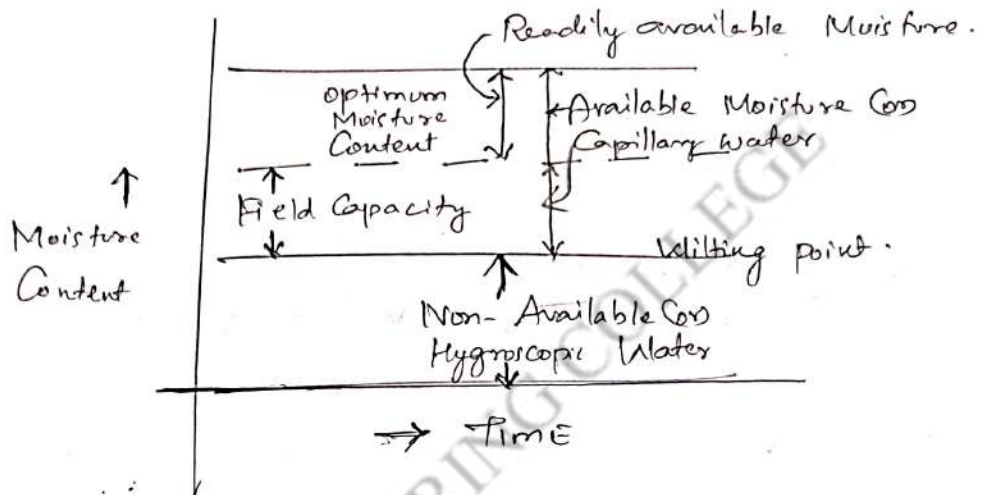 Readily available Moisture.
Optimum
Moisture
Content
Available Moisture (or)
Capillary water
Field Capacity
Moisture
Content
Wilting point.
Non-Available (or)
Hygroscopic Water
Time
RING COLLEGE